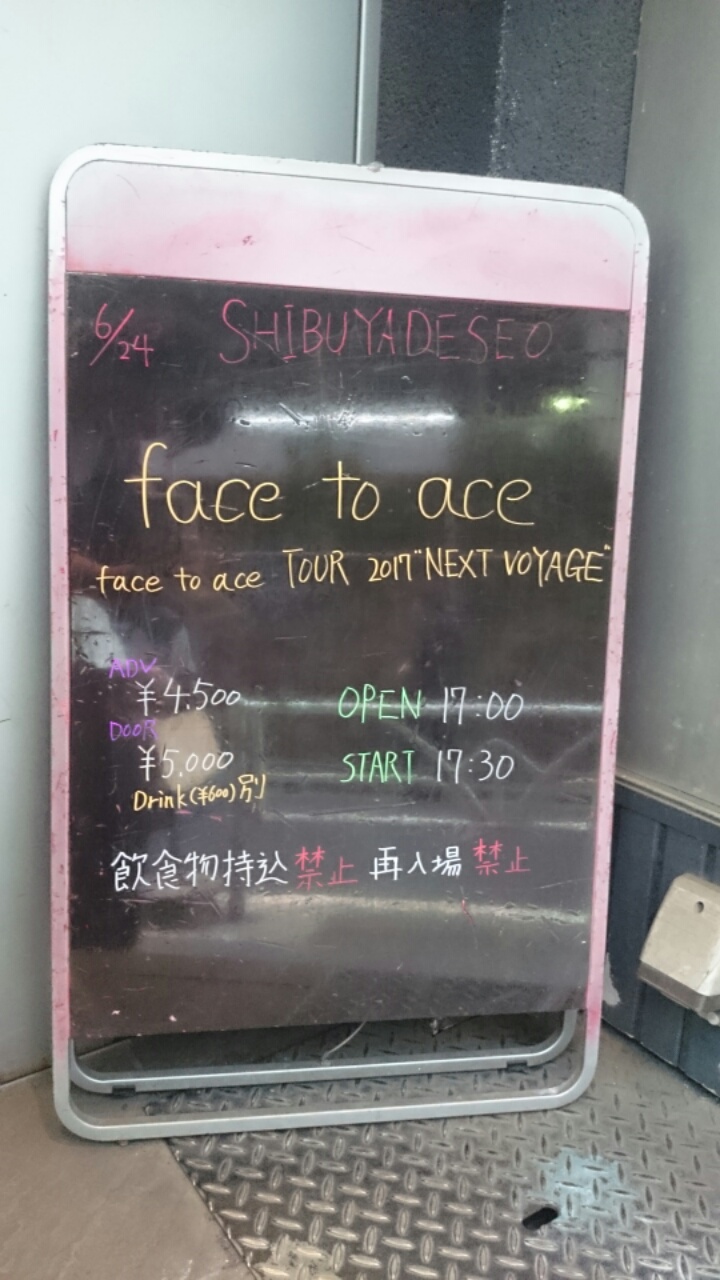 6/24 SHIBUYADESEO
face to ace
face to ace TOUR 2017"NEXT VOYAGE"
ADV
¥4.500 OPEN 17:00
DOOR
¥5.000 START 17:30
Drink(¥600)別
飲食物持込禁止 再入場禁止